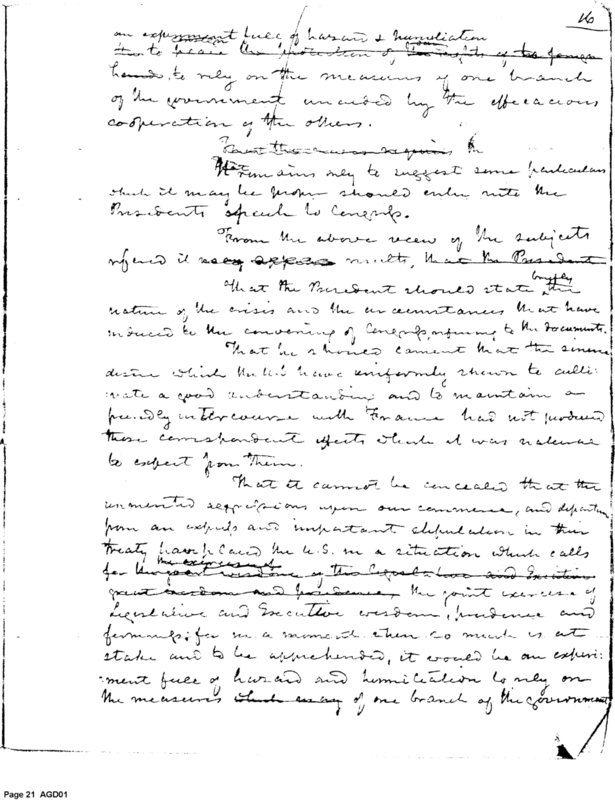 16
an experiment full of hazard & humiliation
to place the protection of the rights of the
to rely on the measures of one branch
of the government unaided by the efficacious
cooperation of the others.
It remains only to suggest some particulars
which it may be proper should enter into the
Presidents Speech to Congress.
From the above view of the subjects
refered it results, that the President
That the President should state briefly the
nature of the crisis and the circumstances that have
induced to the convening of Congress, refering to the documents.
That he should lament that the sincere
desire which the U.S have uniformly shown to culti-
vate a good understanding and to maintain a
friendly intercourse with France had not produced
those correspondent effects which it was natural
to expect from them.
That it cannot be concealed that the
unmerited aggressions upon our commerce, and departure
from an express and important stipulation in their
treaty have placed the U.S. in a situation which calls
the exercise of
for the great wisdom of the Legislative and Executive
great wisdom and prudence, the joint exercise of
Legislative and Executive wisdom, prudence and
firmness; for in a moment when so much is at
stake and to be apprehended, it would be an experi-
ment full of hazard and humiliation to rely on
the measures which may of one branch of the government
Page 21 AGD01